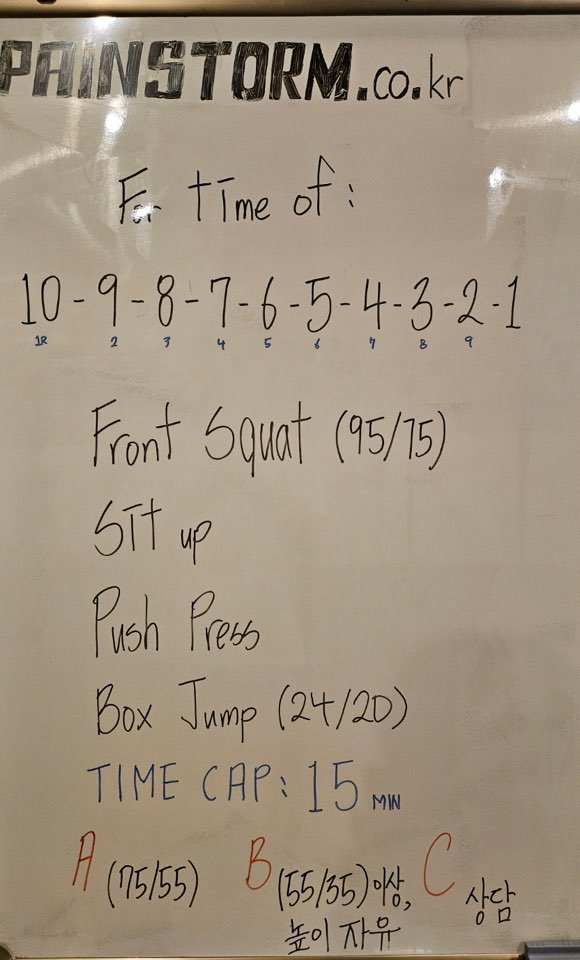 PAINSTORM.co.kr
For time of:
10-9-8-7-6-5-4-3-2-1
1R 2 3 4 5 6 7 8 9
Front Squat (95/75)
Sit up
Push Press
Box Jump (24/20)
TIME CAP: 15 MIN
A (75/55) B (55/35)이상, C 상담
높이 자유